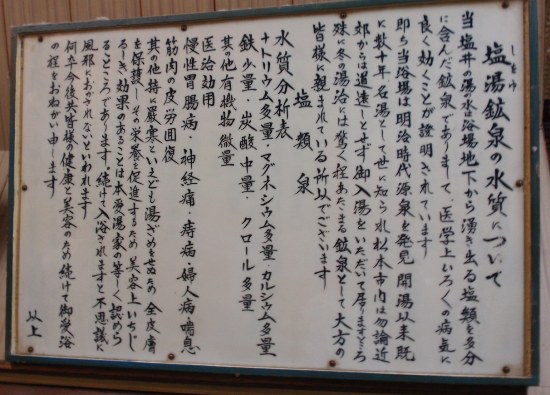 塩湯鉱泉の水質について
しおゆ
当塩井の湯の水は浴場地下から湧き出る塩類を多分
に含んだ鉱泉でありまして、医学上いろ〱の病気に
良く効くことが證明されています
即ち当浴場は明治時代源泉を発見 開湯以来既
に数十年名湯として世に知られ松本市内は勿論近
郊からは遠遠しとせず御入湯をいただいて居りますところ
殊に冬の湯治には驚く程あたゝまる鉱泉として大方の
皆様に親まれている所以でございます
塩類泉
水質分析表
ナトリウム多量・マグネシウム多量・カルシウム多量
鉄少量・炭酸中量・クロール多量
其の他有機物微量
医治効用
慢性胃腸病・神経痛・痔病・婦人病・喘息
筋肉の皮労回復
其の他特に厳寒といえども湯ざめをせぬため全皮膚
を保護しその栄養を促進するため美容上いちじ
るしき効果のあることは本愛湯家の等しく認めら
るところであります、続けて入浴されますと不思議に
風邪におかされないといわれます
何卒今後共皆様の健康と美容のため続けて御愛浴
の程をおねがい申します
以上